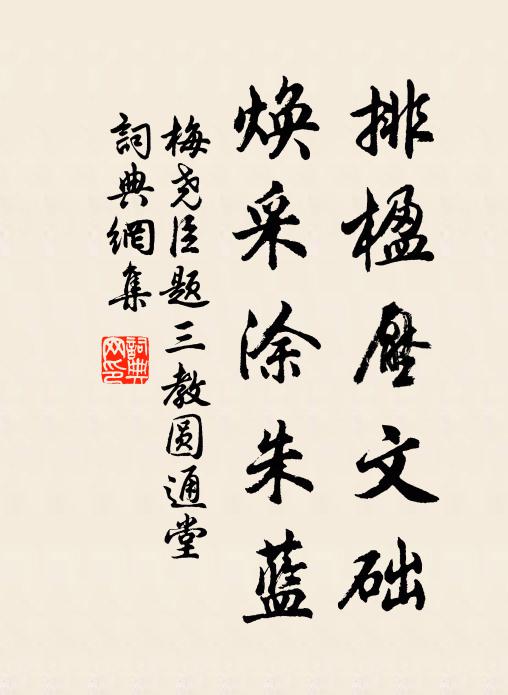 排楹壓文础
焕采涂朱藍
梅尧臣题三教圆通堂
詞典網集
詞典网印